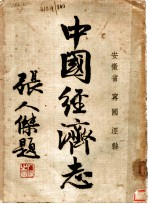 安徽省 寧國 涇縣
中國經濟志
張人傑題